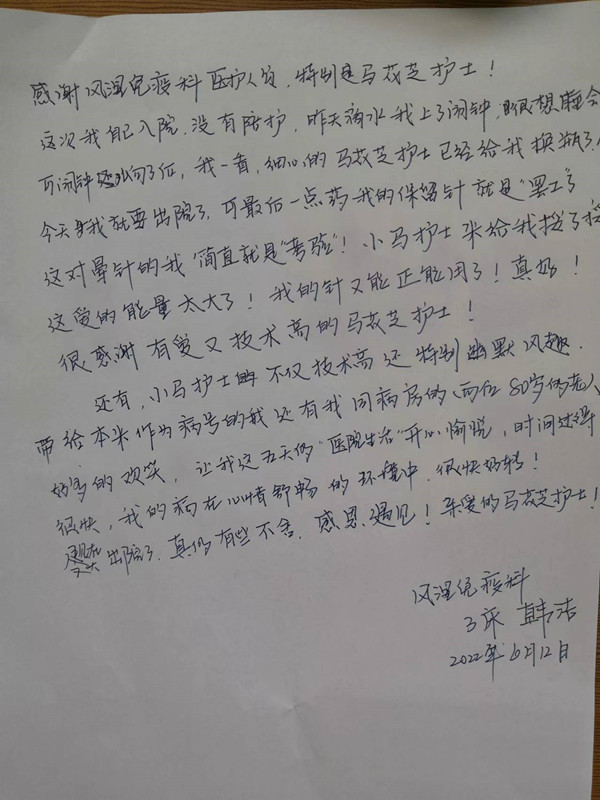 感谢风湿免疫科医护人员,特别是马荻芝护士!
这次我自己入院,没有陪护,昨天滴水我上了闹钟,很想睡会
可闹钟还没响了伍,我一看,细心的马荻芝护士已经给我换瓶了,
今天我就要出院了,可最后一点药我的保留针就是“罢工”了
这对晕针的我简直就是“考验”!小马护士来给我揉了揉
这爱的能量太大了!我的针又能正能用了!真好!
很感谢有爱又技术高的马荻芝护士!
还有,小马护士不仅技术高还特别幽默风趣.
带给本来作为病号的我还有我同病房的(两位80岁的老人)
好多的欢笑,让我这五天的“医院生活”开心愉悦,时间过得
很快,我的病在心情舒畅的环境中,很快好转!
要出院了,真的有些不舍,感恩遇见!亲爱的马荻芝护士!
风湿免疫科
3床 韩洁
2022年6月12日